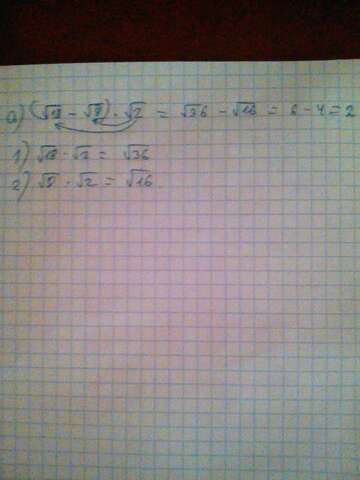 а) (√18 - √8) · √2 = √36 - √16 = 6 - 4 = 2
1) √18 · √2 = √36
2) √8 · √2 = √16